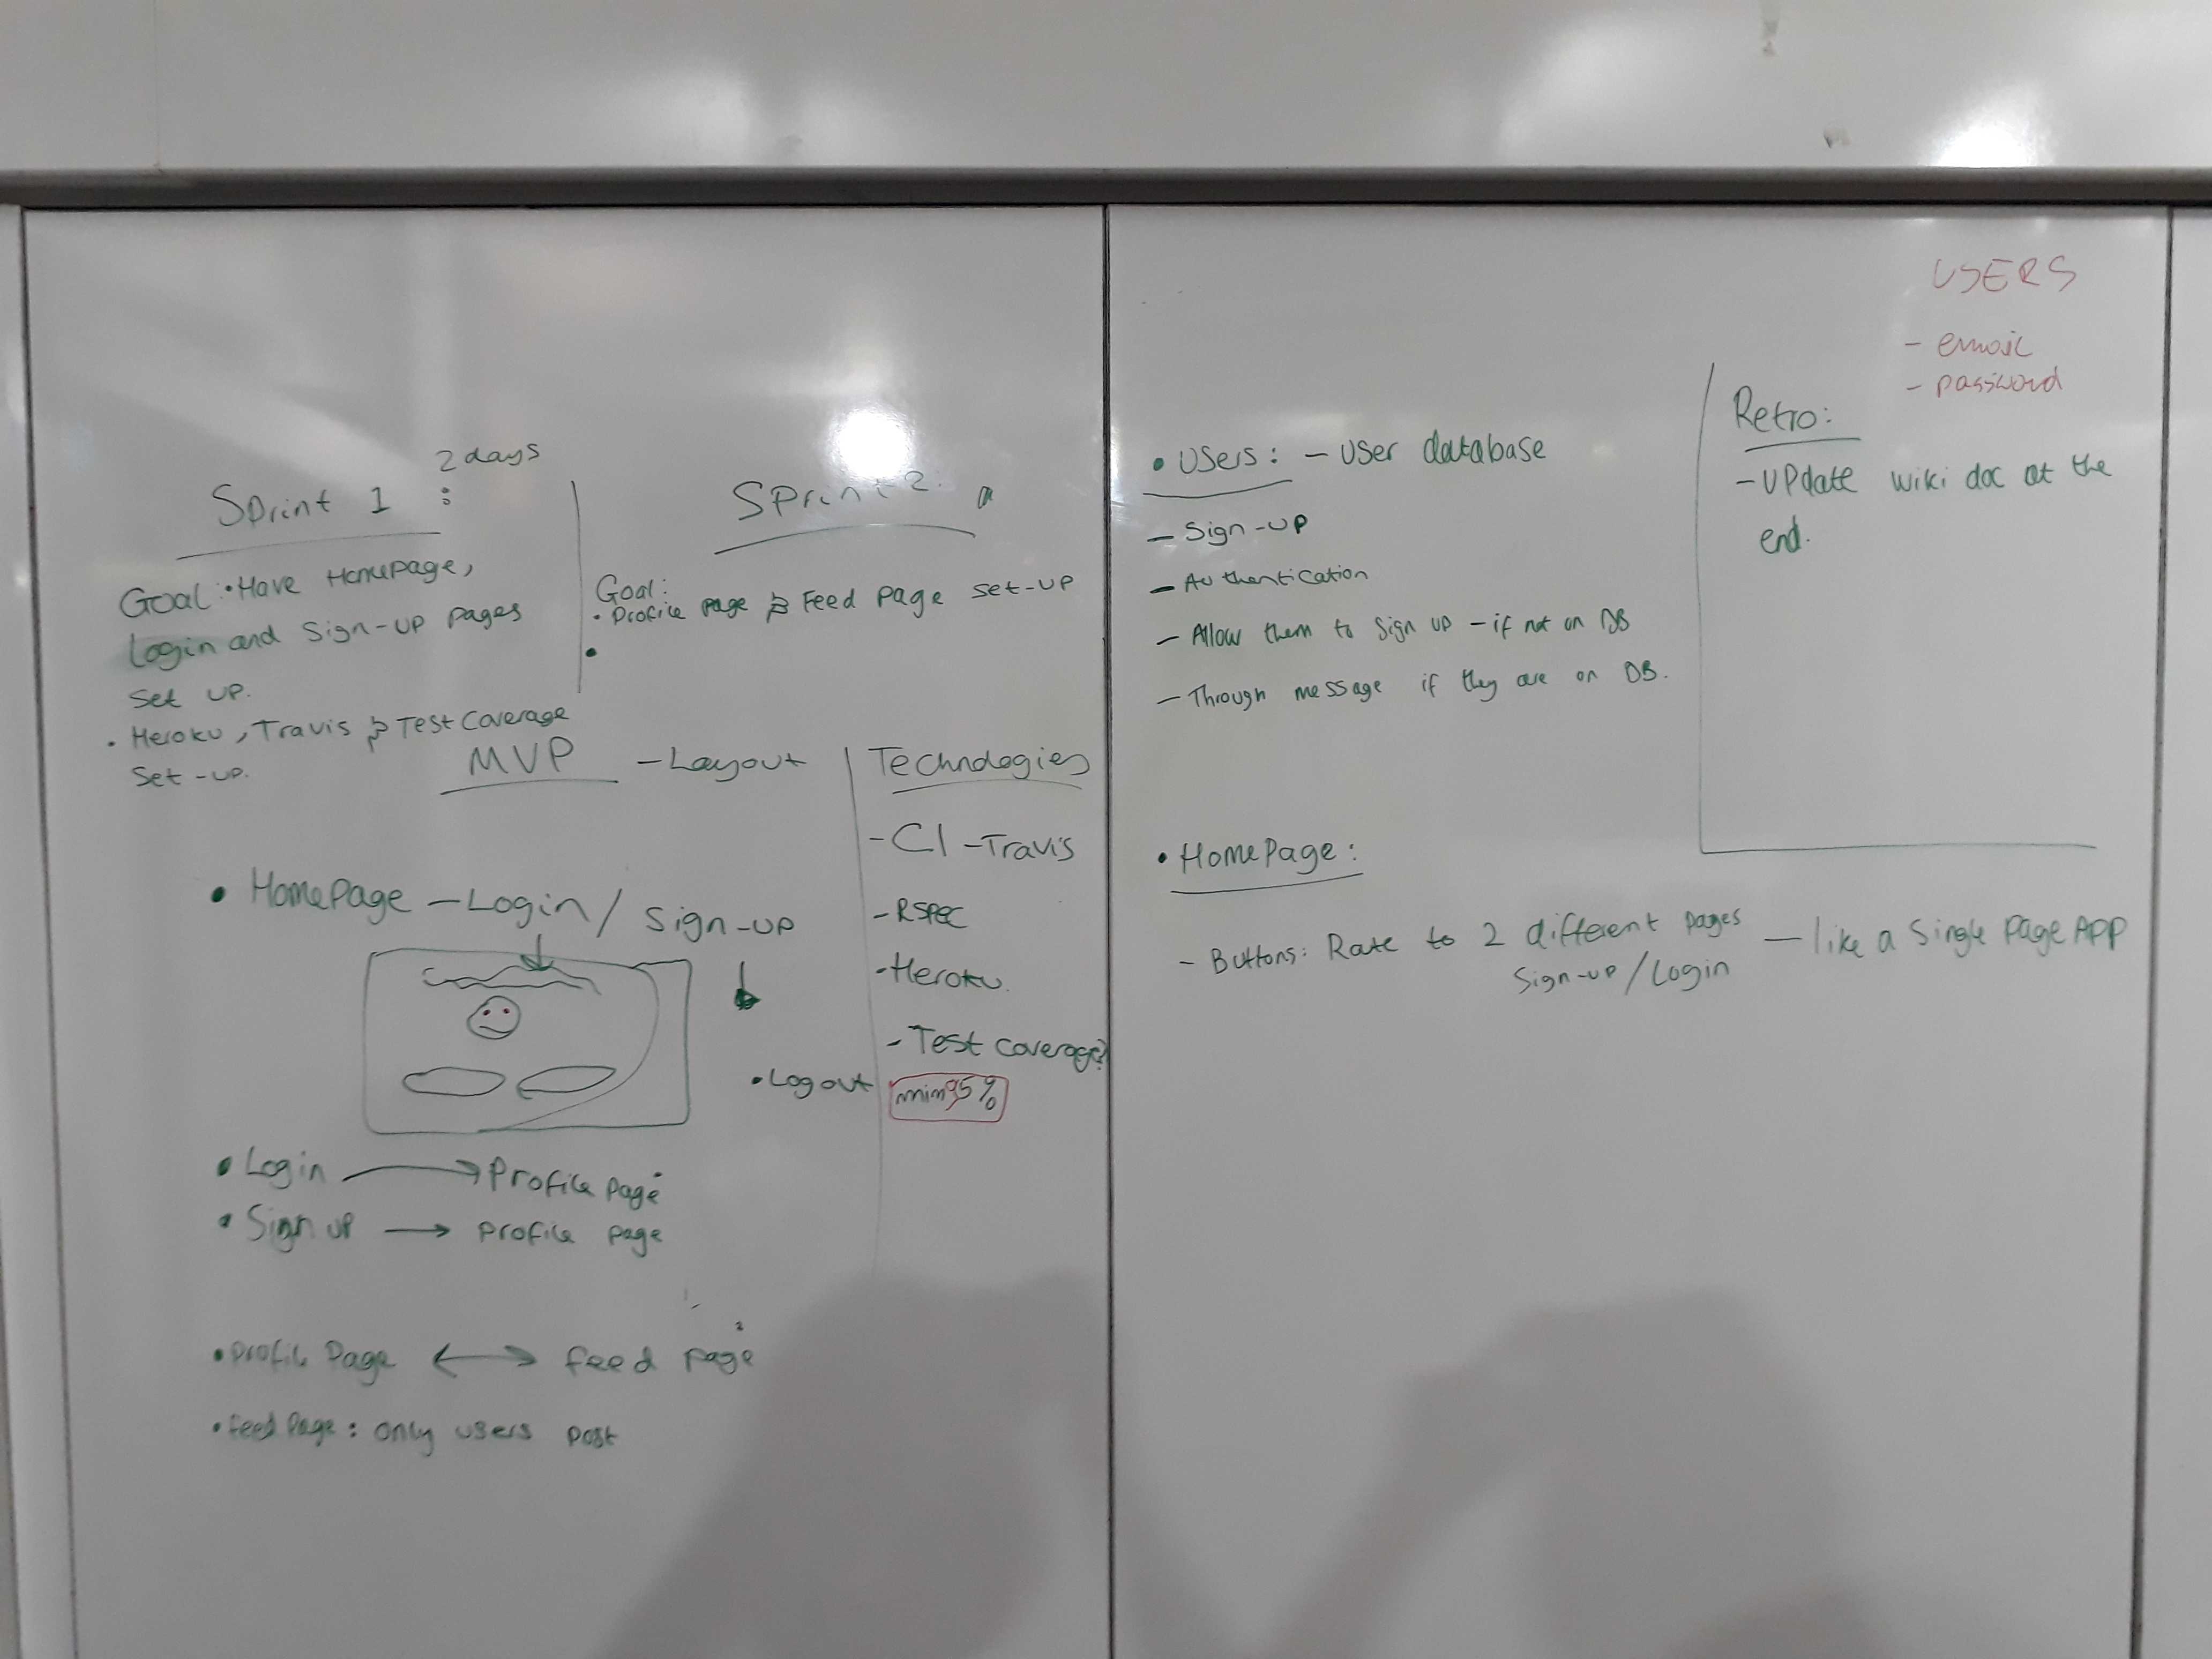 2 days
Sprint 1 :
Goal: • Have Homepage,
Login and Sign-up pages
Set up.
• Heroku, Travis & Test Coverage
Set-up.
Sprint 2:
Goal:
• Profile page & Feed page set-up
•
MVP - Layout
• HomePage - Login / Sign-up
• Logout
• Login → Profile page
• Sign up → profile page
• Profile Page ↔ feed page
• feed Page: only users post
Technologies
- CI - Travis
- RSPEC
- Heroku.
- Test coverage?
min 95%
• Users: - User database
- Sign-up
- Authentication
- Allow them to sign up - if not on DB
- Through message if they are on DB.
USERS
- email
- password
Retro:
- Update wiki doc at the
end.
• HomePage:
- Buttons: Rate to 2 different pages - like a Single Page App
Sign-up / Login